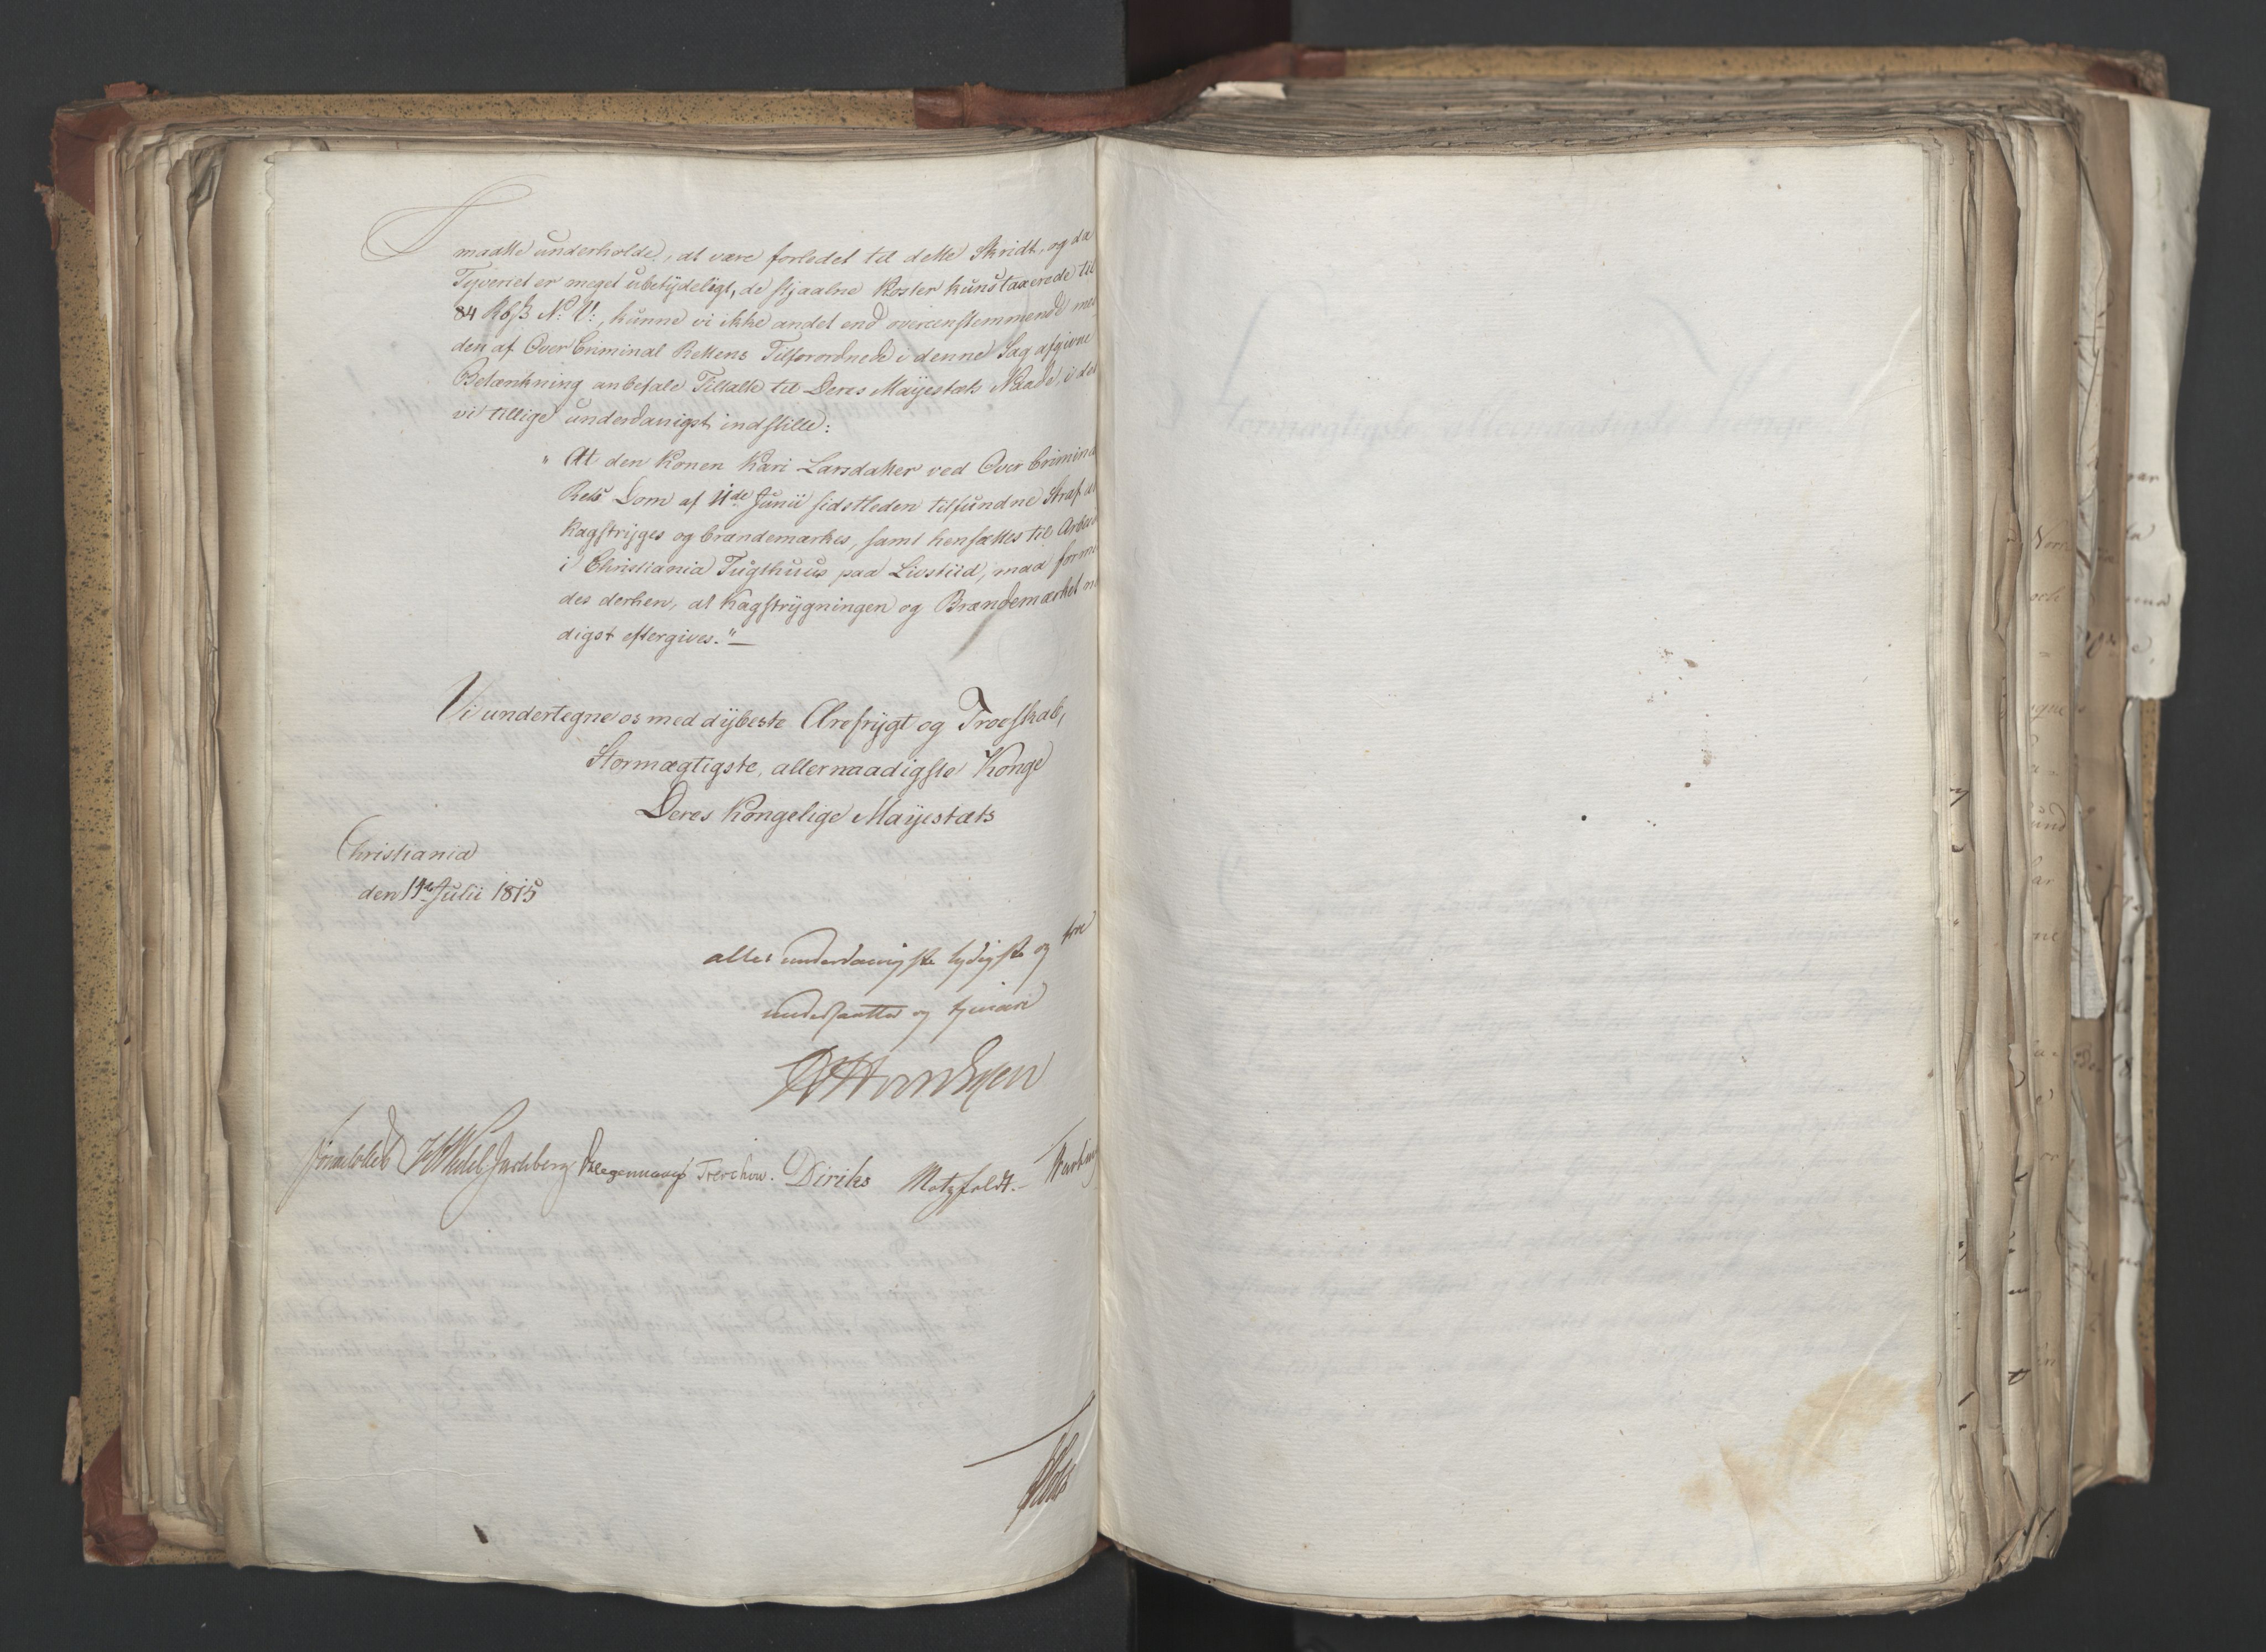 maatte underholde, at være forledet til dette Skridt, og da
Tyveriet er meget ubetydeligt, de stjaalne Koster kuns taxerede til
84 Rbß N: V:, kunne vi ikke andet end overeenstemmende med
den af Over Criminal Rettens Tilforordnede i denne Sag afgivne
Betænkning anbefale Tiltalte til Deres Mayestæts Naade, i det
vi tillige underdanigst indstille:
" At den Konen Kari Larsdatter ved Over Criminal
Rets Dom af 11de Junii sidstleden tilfundne Straf at
kagstryges og brændemærkes, samt hensættes til Arbeid
i Christiania Tugthuus paa Livstiid, maa formil
des derhen, at Kagstrygningen og Brændemærket naa
digst eftergives."
Vi undertegne os med dybeste Ærefrygt og Troeskab,
Stormægtigste, allernaadigste Konge
Deres Kongelige Mayestæts
Christiania
den Julii 1815
aller underdanigste lydigste og troe
undersaatter og tjenere
Sommerhielm Krogh Treschow. Diriks Motzfeldt.
Holst